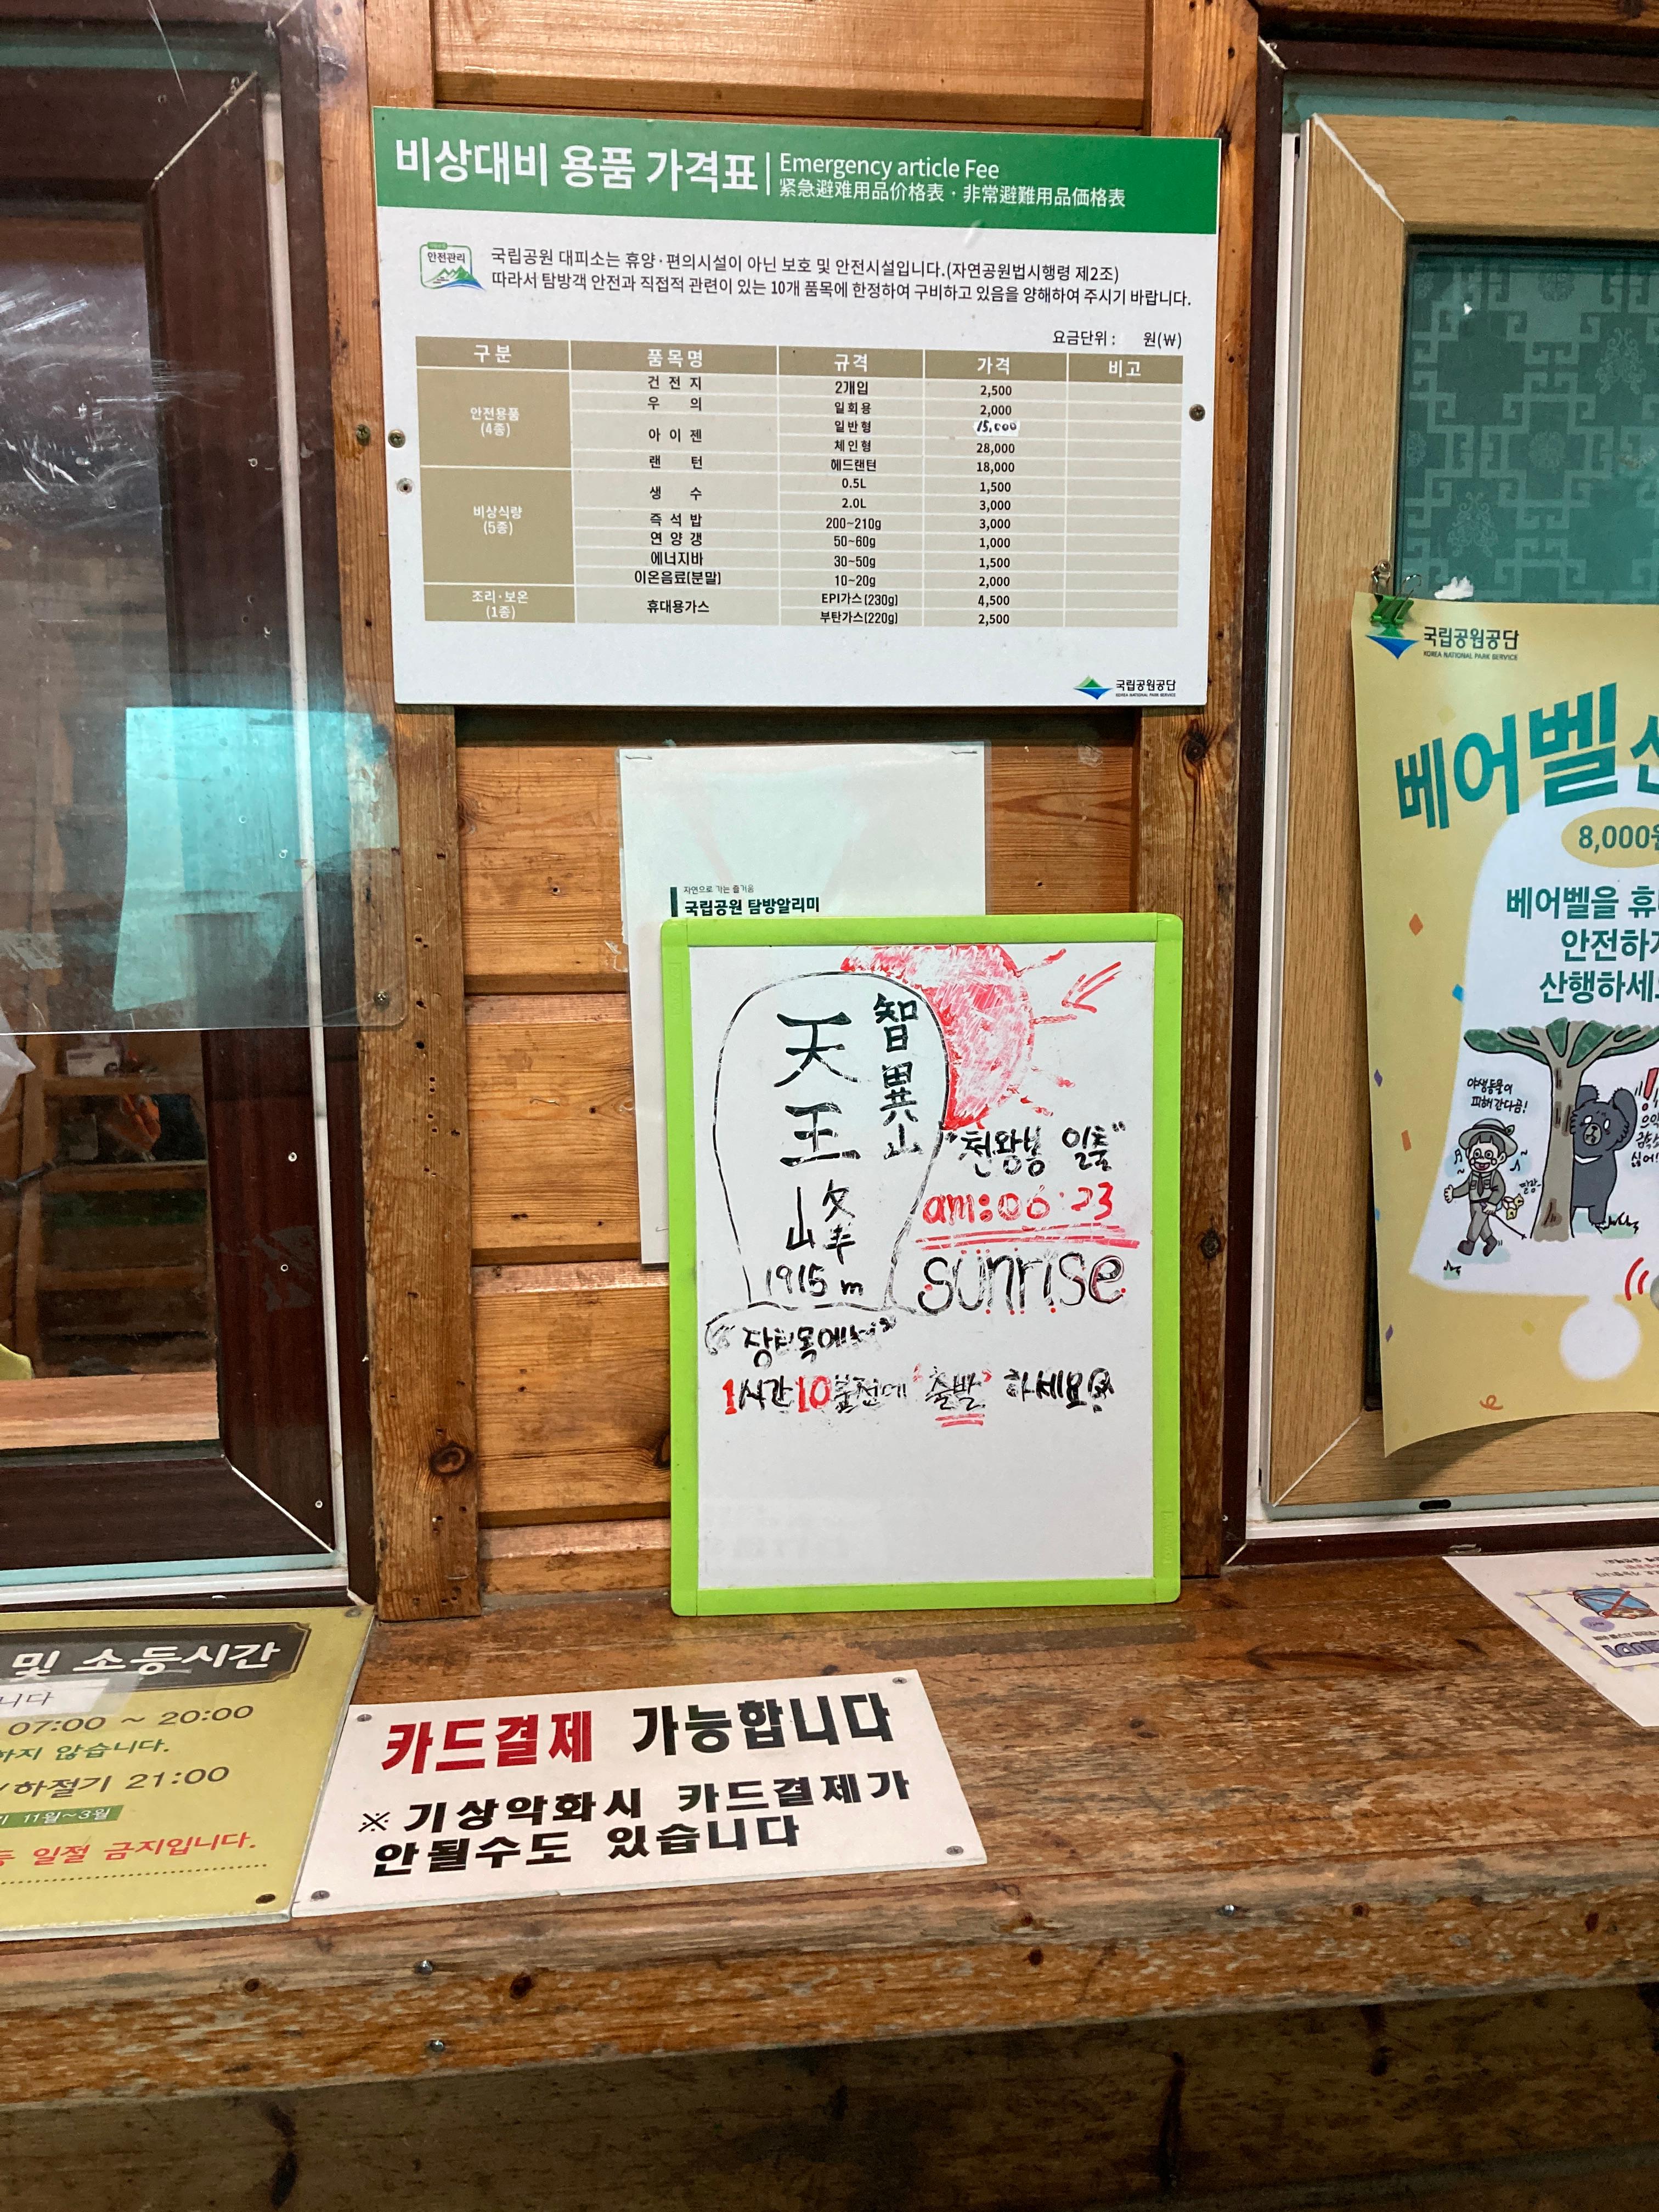 비상대비 용품 가격표
Emergency article Fee
紧急避难用品价格表 · 非常避難用品価格表
안전관리
국립공원 대피소는 휴양·편의시설이 아닌 보호 및 안전시설입니다.(자연공원법시행령 제2조)
따라서 탐방객 안전과 직접적 관련이 있는 10개 품목에 한정하여 구비하고 있음을 양해하여 주시기 바랍니다.
요금단위 : 원(₩)
구분 품목명 규격 가격 비고
안전용품 (4종)
건전지 2개입 2,500
우의 일회용 2,000
아이젠 일반형 15,000
체인형 28,000
랜턴 헤드랜턴 18,000
비상식량 (5종)
생수 0.5L 1,500
2.0L 3,000
즉석밥 200~210g 3,000
연양갱 50~60g 1,000
에너지바 30~50g 1,500
이온음료(분말) 10~20g 2,000
조리·보온 (1종)
휴대용가스 EPI가스(230g) 4,500
부탄가스(220g) 2,500
국립공원공단
KOREA NATIONAL PARK SERVICE
자연으로 가는 즐거움
국립공원 탐방알리미
智異山
天王峰
1915 m
"천왕봉 일출"
am:06:23
sunrise
"장터목에서"
1시간10분전에 '출발' 하세요
국립공원공단
KOREA NATIONAL PARK SERVICE
베어벨
8,000원
베어벨을
안전하게
산행하세요
야생동물이
피해간다곰!
및 소등시간
니다
07:00 ~ 20:00
하지 않습니다.
/하절기 21:00
11월~3월
등 일절 금지입니다.
카드결제 가능합니다
※ 기상악화시 카드결제가
안될수도 있습니다